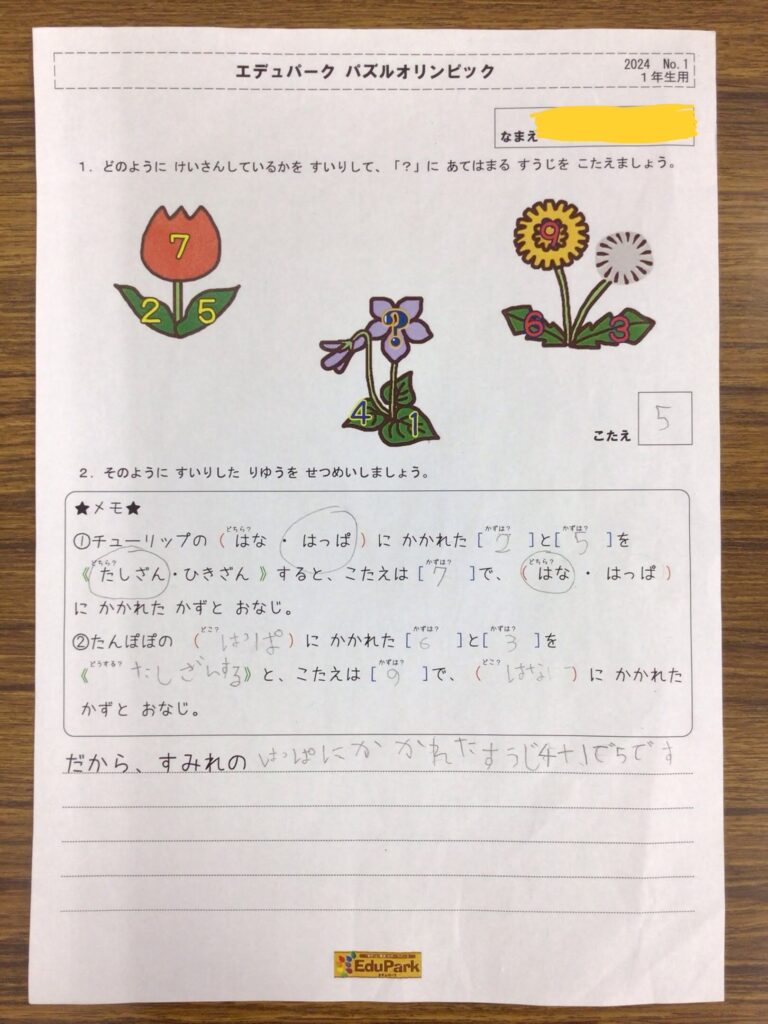 エデュパーク パズルオリンピック
2024 No.1
1年生用
なまえ
1. どのように けいさんしているかを すいりして、「?」に あてはまる すうじを こたえましょう。
7
2 5
9
6 3
?
4 1
こたえ 5
2. そのように すいりした りゆうを せつめいしましょう。
★メモ★
どちら? かずは? かずは?
①チューリップの (はな ・ はっぱ) に かかれた [2]と[5]を
どちら? かずは? どちら?
《たしざん・ひきざん》すると、こたえは [7]で、(はな ・ はっぱ)
に かかれた かずと おなじ。
どこ? かずは? かずは?
②たんぽぽの (はっぱ) に かかれた [6]と[3]を
どうする? かずは? どこ?
《たしざんする》と、こたえは [9]で、(はな) に かかれた
かずと おなじ。
だから、すみれの はっぱにかかれたすうじ4+1で5です
EduPark